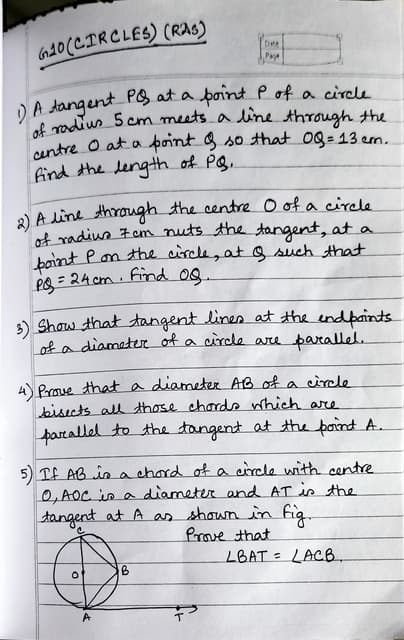 G10(CIRCLES) (R2s)
Date
Page
1) A tangent PQ at a point P of a circle
of radius 5 cm meets a line through the
centre O at a point Q so that OQ = 13 cm.
Find the length of PQ.
2) A line through the centre O of a circle
of radius 7 cm nuts the tangent, at a
point P on the circle, at Q such that
PQ = 24 cm. Find OQ.
3) Show that tangent lines at the endpoints
of a diameter of a circle are parallel.
4) Prove that a diameter AB of a circle
bisects all those chords which are
parallel to the tangent at the point A.
5) If AB is a chord of a circle with centre
O, AOC is a diameter and AT is the
tangent at A as shown in fig.
Prove that
∠BAT = ∠ACB.
C
O
B
A
T